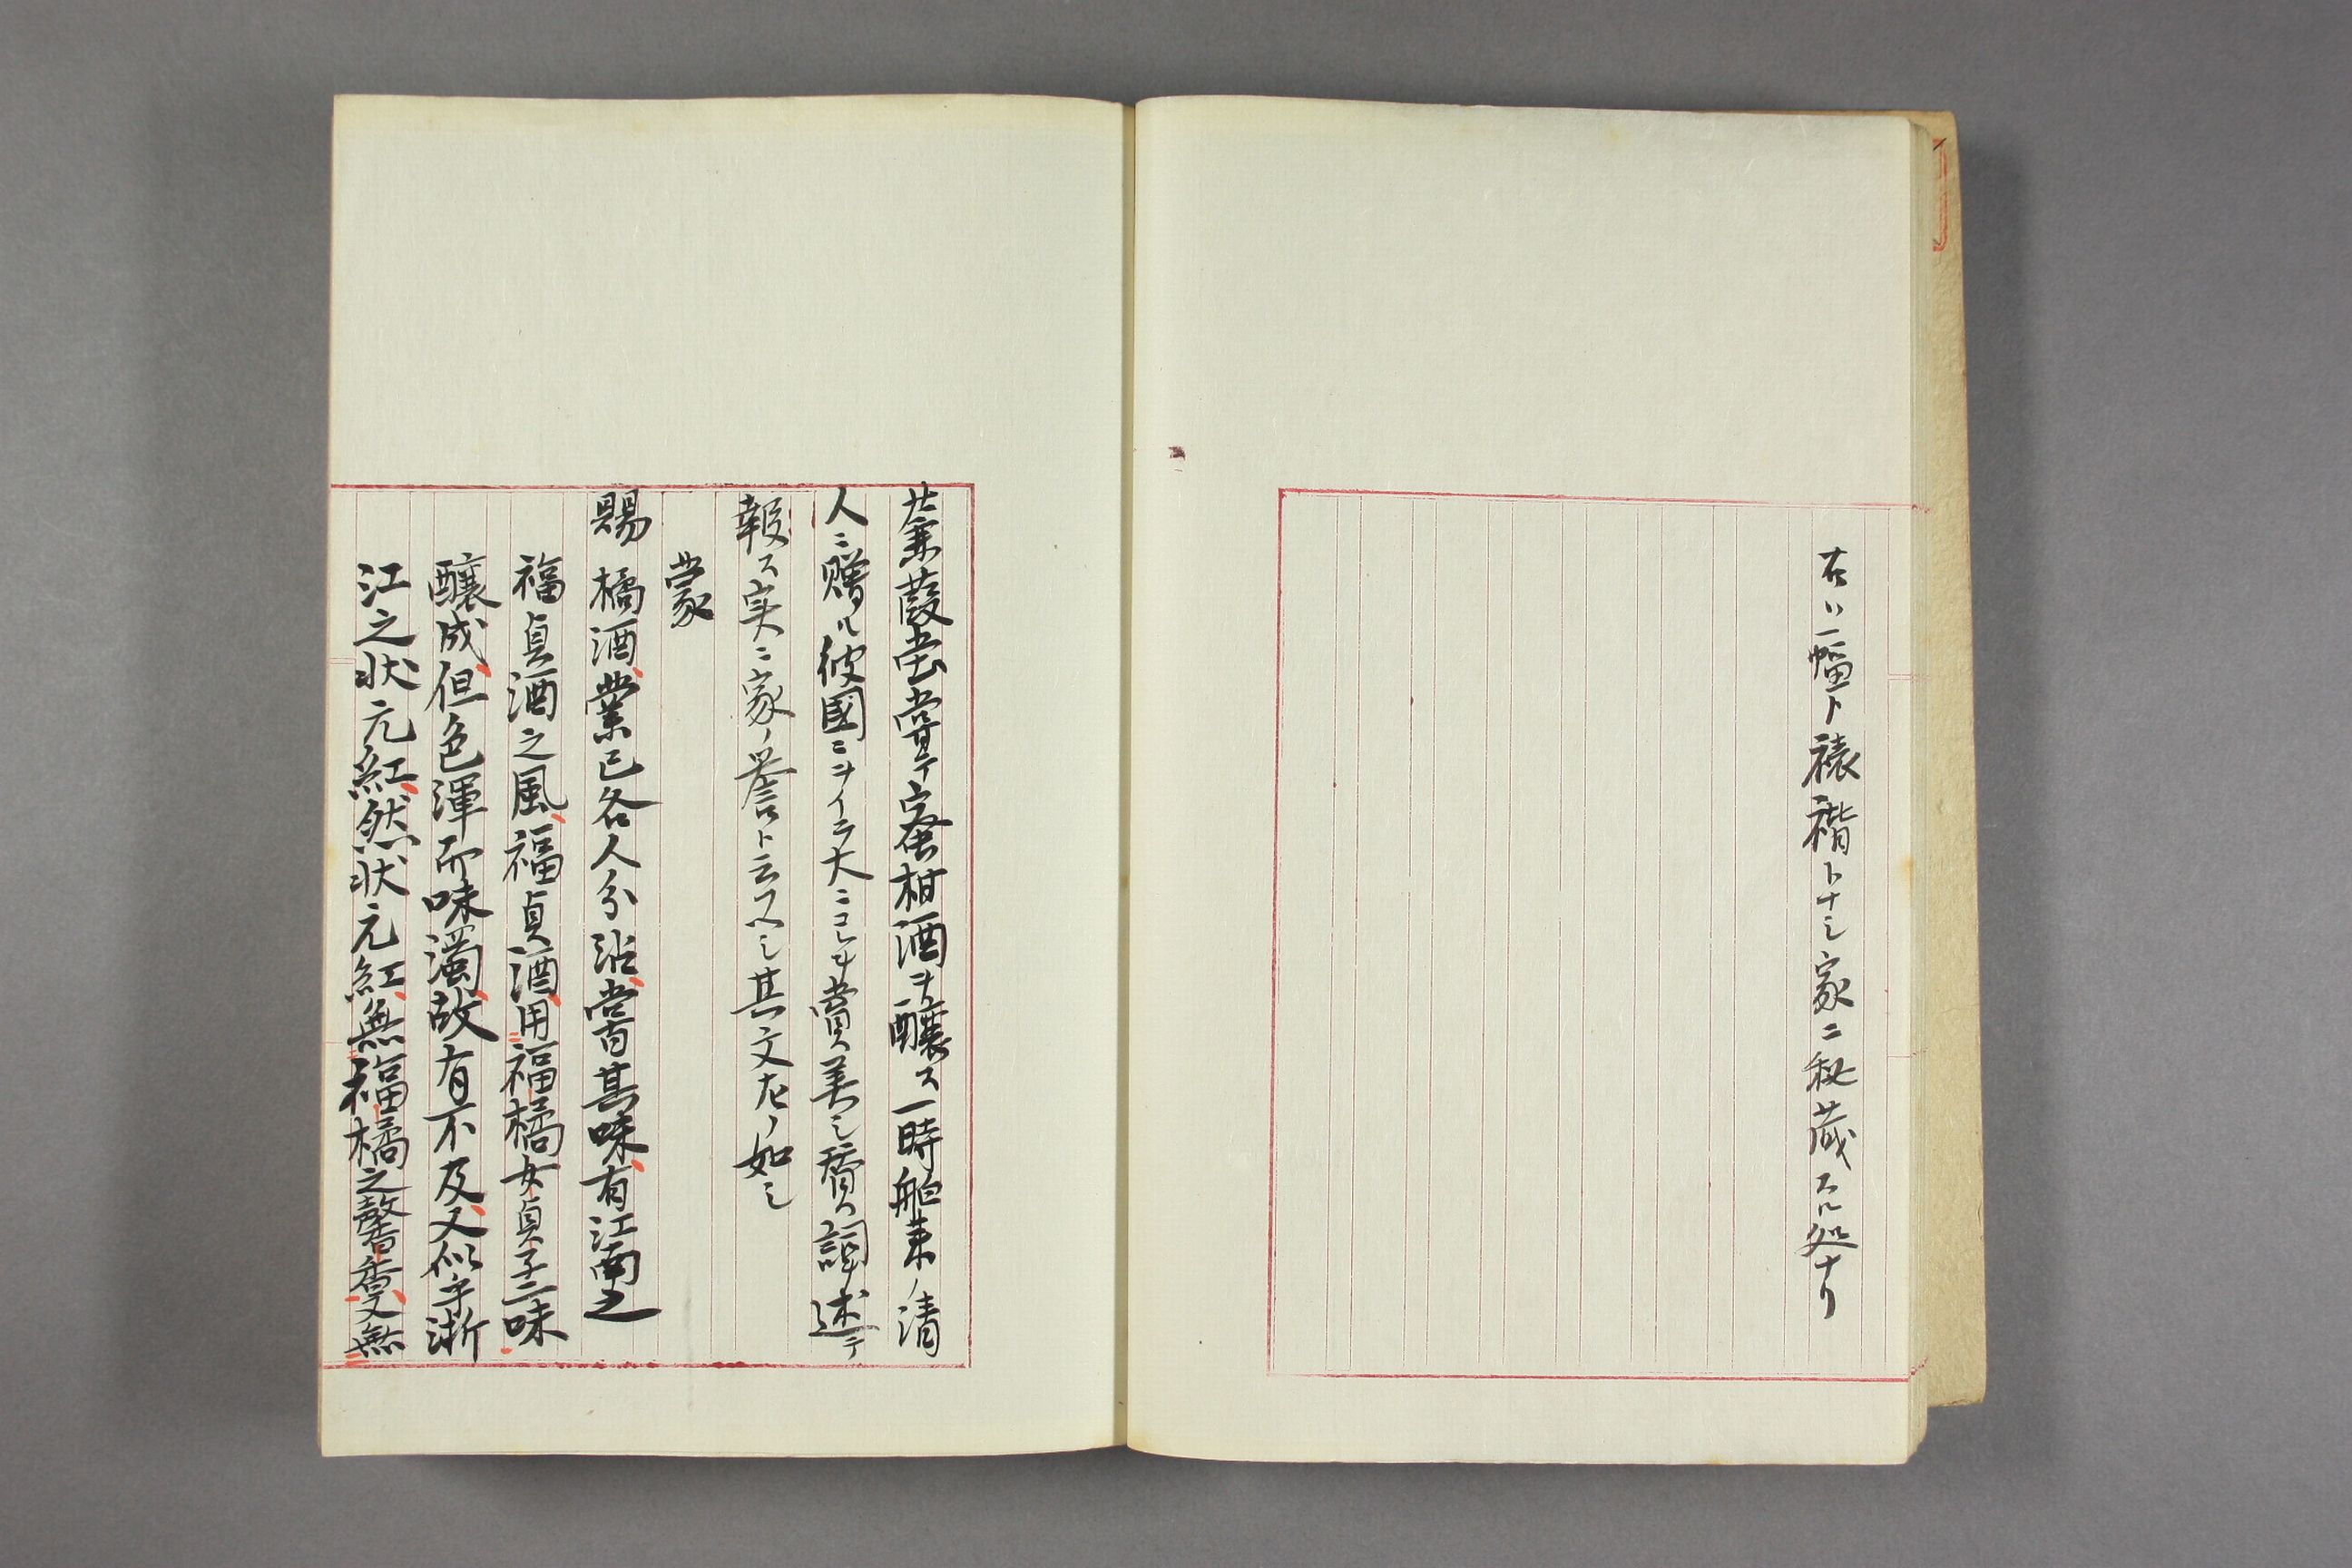 右ハ一幅ト裱褙トナシ家ニ秘蔵スル処ナリ
蒹葭堂嘗テ蜜柑酒ヲ醸ス一時舶来ノ清
人ニ贈ル彼國ニヲイテ大ニコレヲ賞美シ賛詞ヲ述テ
報ス実ニ家ノ誉ト云ヘシ其文左ノ如シ
蒙
賜 橘酒業已各人分沾嘗其味有江南之
福貞酒之風福貞酒用福橘女貞子三味
醸成但色渾而味濁故有不及又似乎浙
江之状元紅然状元紅無福橘之馨香又無